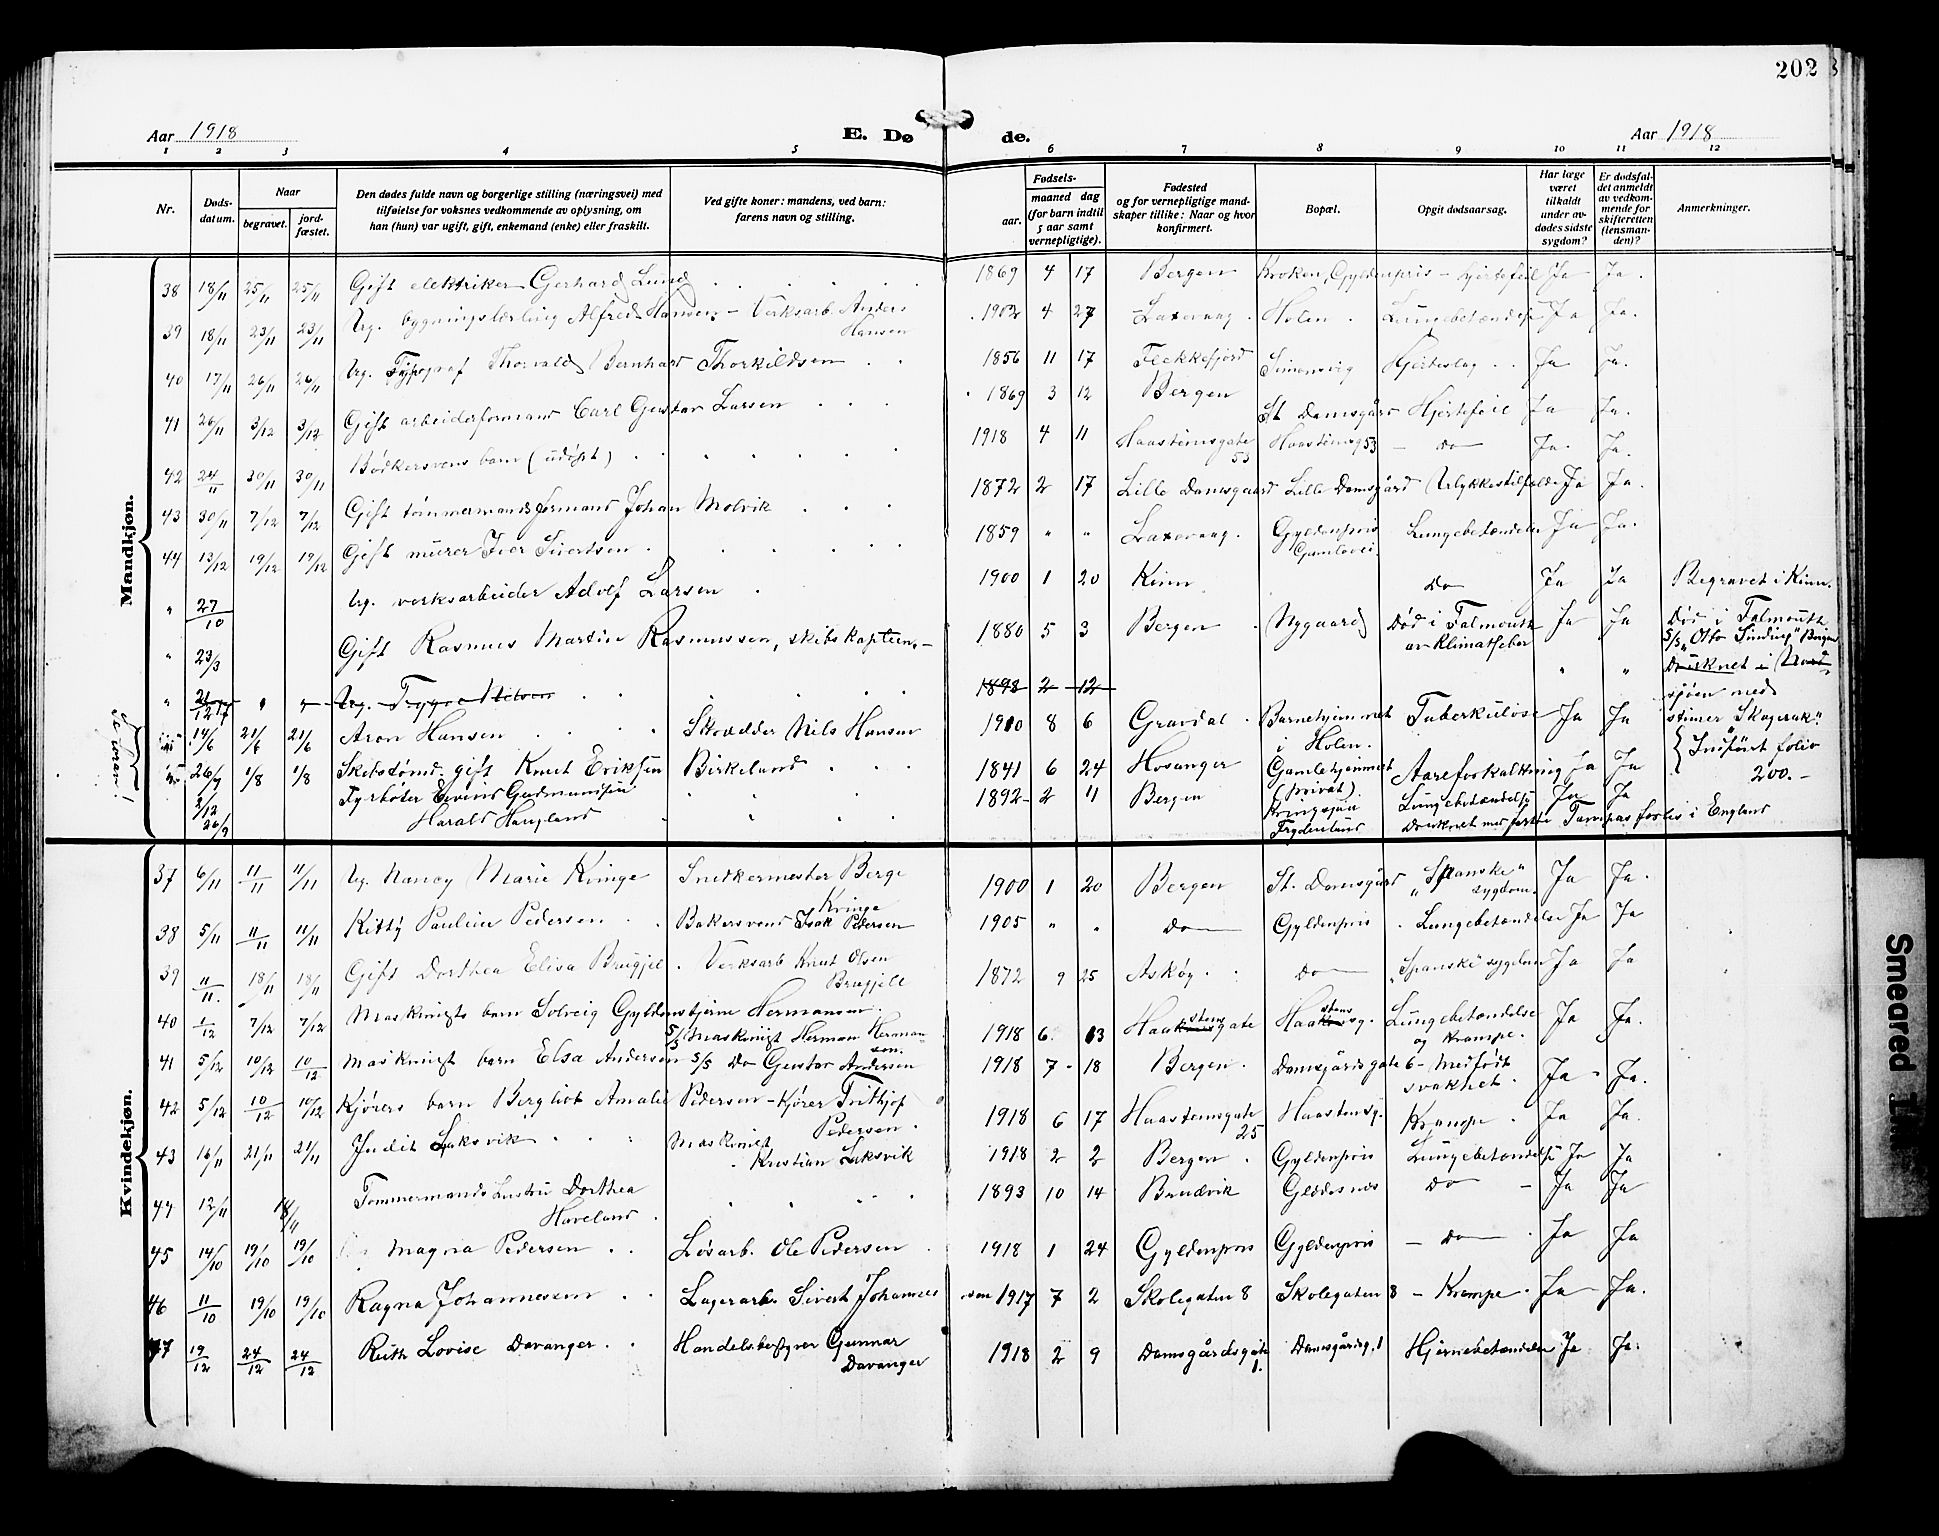 202
Aar 1918
E. Dø de.
Aar 1918
1 2 3 4 5 6 7 8 9 10 11 12
Nr.
Døds-
datum.
Naar
begravet.
jord-
fæstet.
Den dødes fulde navn og borgerlige stilling (næringsvei) med
tilføielse for voksnes vedkommende av oplysning, om
han (hun) var ugift, gift, enkemand (enke) eller fraskilt.
Ved gifte koner: mandens, ved barn:
farens navn og stilling.
Fødsels-
aar.
maaned dag
(for barn indtil
5 aar samt
vernepligtige).
Fødested
og for vernepligtige mand-
skaper tillike: Naar og hvor
konfirmert.
Bopæl.
Opgit dødsaarsag.
Har læge
været
tilkaldt
under av-
dødes sidste
sygdom?
Er dødsfal-
det anmeldt
av vedkom-
mende for
skifteretten
(lensman-
den)?
Anmerkninger.
Mandkjøn.
38 18/11 25/11 25/11 Gift elektriker Gerhard Lund 1869 4 17 Bergen Kroken, Gyldenpris - Hjertefeil Ja Ja.
39 18/11 23/11 23/11 Ug. bygningslærling Alfred Hansen - Verksarb. Anders
Hansen 1902 4 27 Laxevaag. Holen. Lungebetændelse Ja Ja.
40 17/11 26/11 26/11 Ug. Typograf Thorvald Bernhard Thorkildsen 1856 11 17 Flekkefjord Simonsvig Hjerteslag Ja Ja.
41 26/11 3/12 3/12 Gift arbeiderformand Carl Gustav Larsen 1869 3 12 Bergen St. Damsgård Hjertefeil Ja Ja.
42 24/11 30/11 30/11 Bødkersvens barn (udøpt) 1918 4 11 Haasteinsgate
53 Haasteinsg 53 - Do - Ja. Ja.
43 30/11 7/12 7/12 Gift tømmermandsformand Johan Molvik 1872 2 17 Lille Damsgaard Lille Damsgård Ulykkestilfelde Ja Ja.
44 13/12 19/12 19/12 Gift murer Iver Sivertsen 1859 " " Laxevaag. Gyldenpris
Gamlevei. Lungebetændelse Ja Ja.
" 27/10 Ug. verksarbeider Adolf Larsen 1900 1 20 Kinn Do Ja Ja Begravet i Kinn.
" 23/3 Gift Rasmus Martin Rasmussen, skibskaptein. 1880 5 3 Bergen Nygaard Død i Falmouth
av Klimatfeber Ja Ja Død i Falmouth
S/S "Otto Sinding" Bergen
" 21/12 17 " " Ug. Trygve Nilsen 1898 2 12 " " Druknet i Nord-
sjøen med
stimer "Skagerak".
Se foran!
14/6 21/6 21/6 Aron Hansen Skrædder Nils Hansen 1910 8 6 Gravdal Barnehjemmet
i Holen. Tuberkuløse Ja Ja
Indført folio
200.-
26/7 1/8 1/8 Skibstømd. gift Knut Eriksen Birkeland 1841 6 24 Hosanger Gamlehjemmet
(privat). Aareforkalkning Ja Ja
2/12 Fyrbøter Eevind Gudmundsen 1892 - 2 11 Bergen Lungebetændelse Ja Ja
26/9 Harald Haugland Frydenlund Druknet med i England
Kvindekjøn.
37 6/11 11/11 11/11 Ug. Nancy Marie Kvinge Snedkermester Berge
Kvinge 1900 1 20 Bergen St. Damsgård "Spanske"
sygdom. Ja Ja.
38 5/11 11/11 11/11 Kitty Pauline Pedersen Bakersvend Isak Pedersen 1905 " " Do Gyldenpris Lungebetændelse Ja Ja
39 11/11. 18/11 18/11 Gift Dorthea Elisa Brugjell Verksarb Knut Olsen
Brugjell 1872 9 25 Askøy. Do "Spanske" sygdom Ja Ja
40 1/12 7/12 7/12 Maskinists barn Solveig Gyldensbjerne Hermansen.
S/S Maskinist Herman Herman-
sen. 1918 6 13 Haasteinsgate Haasteinsg. Lungebetændelse
og Krampe. Ja Ja.
41 5/12 10/12 10/12 Maskinist barn Elsa Andersen S/S Do Gustav Andersen 1918 7 18 Bergen. Damsgårdsgate 6 - Medfødt
svakhet. Ja - Ja.
42 5/12 10/12 10/12 Kjørers barn Bergliot Amalie Pedersen - Kjører Frithjof
Pedersen. 1918 6 17 Haasteinsgate
25 Haasteinsg. Krampe. Ja Ja.
43 16/11 21/11 21/11 Judit Laksvik Maskinist
Kristian Laksvik 1918 2 2 Bergen. Gyldenpris Lungebetændelse Ja Ja
44 12/11 18/11 Tømmermands hustru Dorthea
Haveland. 1893 10 14 Bruvik Glædesnæs Do - Ja Ja
45 14/10 19/10 19/10 Magna Pedersen Løsarb. Ole Pedersen 1918 1 24 Gyldenpris Gyldenpris - Do - Ja Ja
46 11/10 19/10 19/10 Ragna Johannessen Lagerarb. Sivert Johannes-
sen 1917 7 2 Skolegaten 8 Skolegaten 8 - Krampe. Ja Ja.
47 19/12 24/12 24/12 Ruth Lovise Davanger Handelsbestyrer Gunnar
Davanger 1918 2 9 Damsgårdsgate
1. Damsgårdsg. 1 Hjernebetændelse Ja Ja.
Smeared